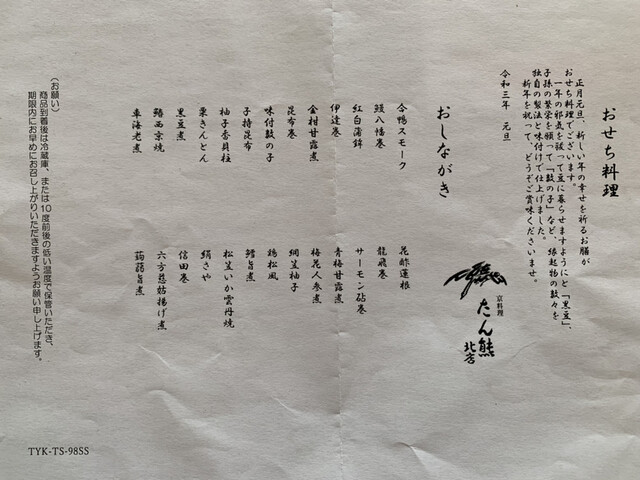 おせち料理
正月元旦、新しい年の幸せを祈るお膳が
おせち料理でございます。
一年の邪気を祓って豆に暮らせますようにと「黒豆」、
子孫の繁栄を願って「数の子」など、縁起物の数々を
独自の製法と味付けで仕上げました。
新年を祝って、どうぞご賞味くださいませ。
令和三年 元旦
京料理
たん熊
北店
おしながき
合鴨スモーク
鰻八幡巻
紅白蒲鉾
伊達巻
金柑甘露煮
昆布巻
味付数の子
子持昆布
柚子香貝柱
栗きんとん
黒豆煮
鰆西京焼
車海老煮
花酢蓮根
龍飛巻
サーモン砧巻
青梅甘露煮
梅花人参煮
網笠柚子
鶏松風
鱈旨煮
松笠いか雲丹焼
絹さや
信田巻
六方慈姑揚げ煮
蒟蒻旨煮
(お願い)
商品到着後は冷蔵庫、または10度前後の低い温度で保管いただき、
期限内にお早めにお召し上がりいただきますようお願い申し上げます。
TYK-TS-98SS